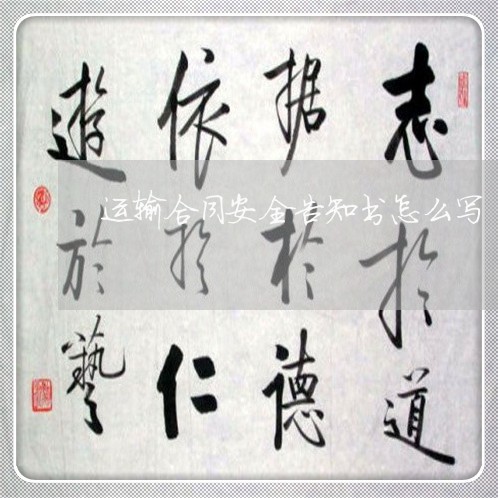 志於道
据於德
依於仁
遊於藝
运输合同安全告知书怎么写